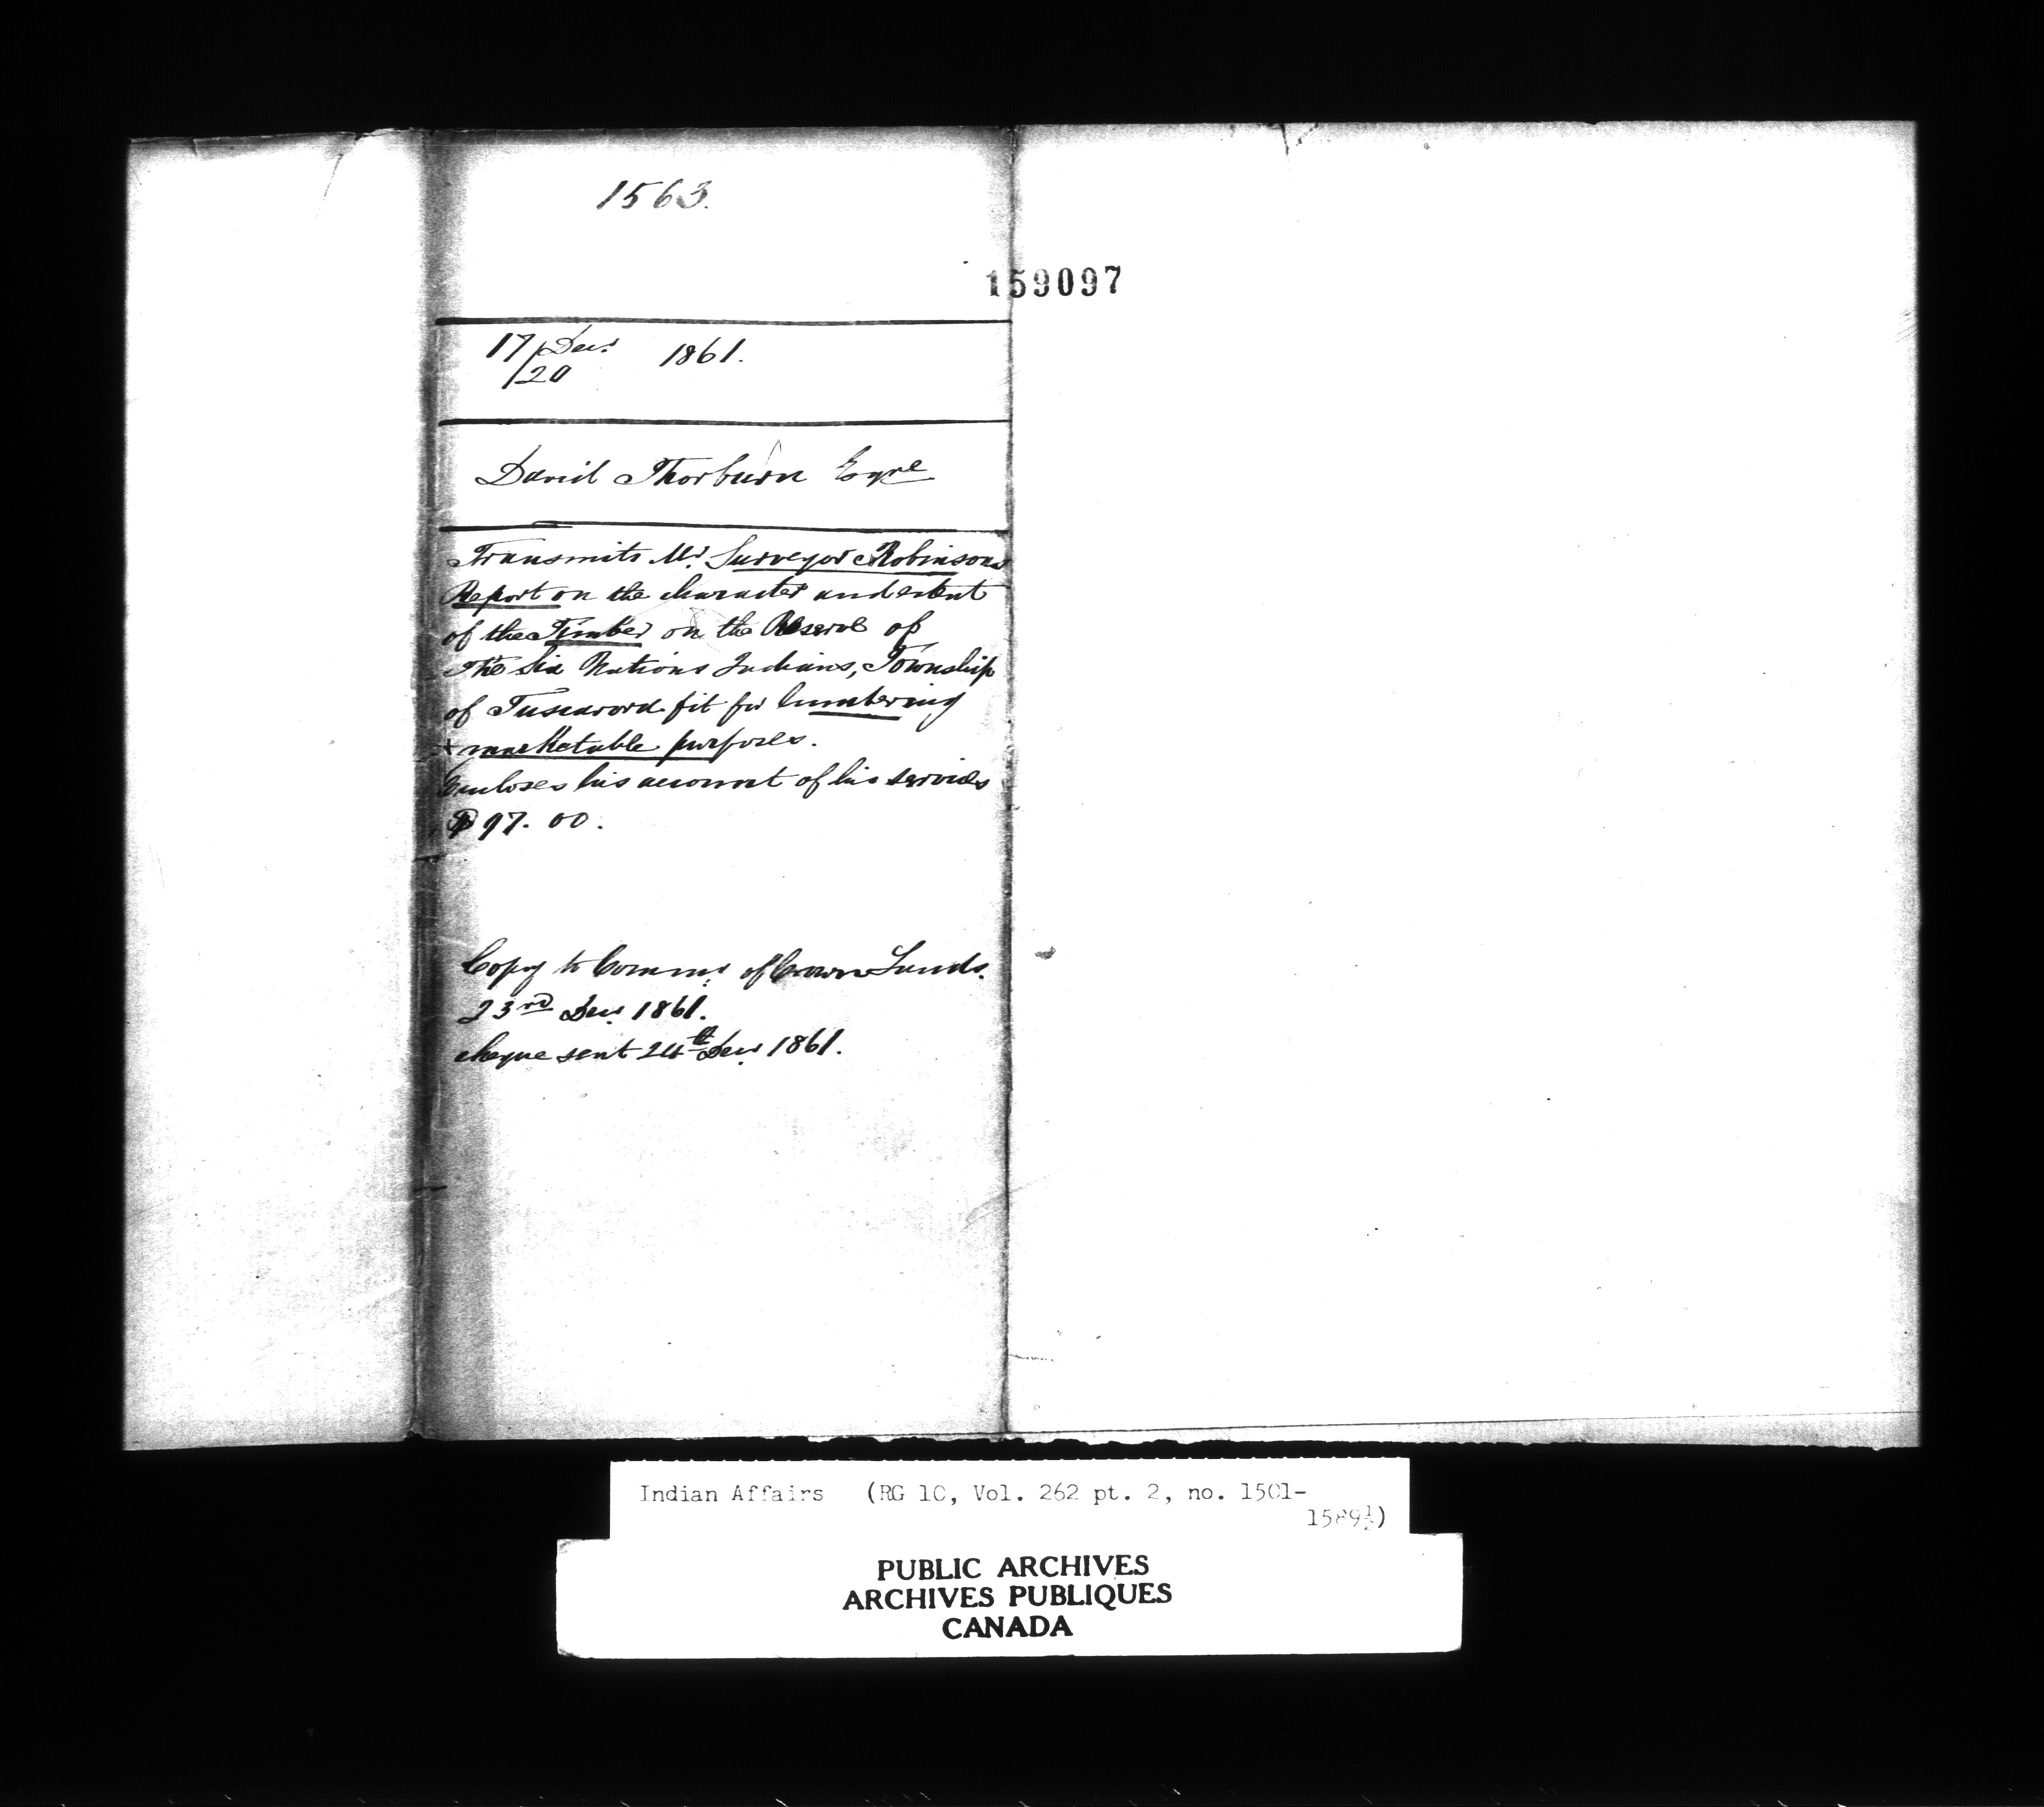 1563.
159097
17/20 Decr 1861.
David Thorburn Esqre
Transmits Mr. Surveyor Robinsons
Report on the character and extent
of the Timber on the Reserve of
The Six Nations Indians, Township
of Tuscarora fit for lumbering
+ marketable purposes.
Encloses his account of his services
$97.00.
Copy to Commr of Crown Lands.
23rd Decr 1861.
cheque sent 24th Decr 1861.
Indian Affairs (RG 10, Vol. 262 pt. 2, no. 1501-
1589½)
PUBLIC ARCHIVES
ARCHIVES PUBLIQUES
CANADA